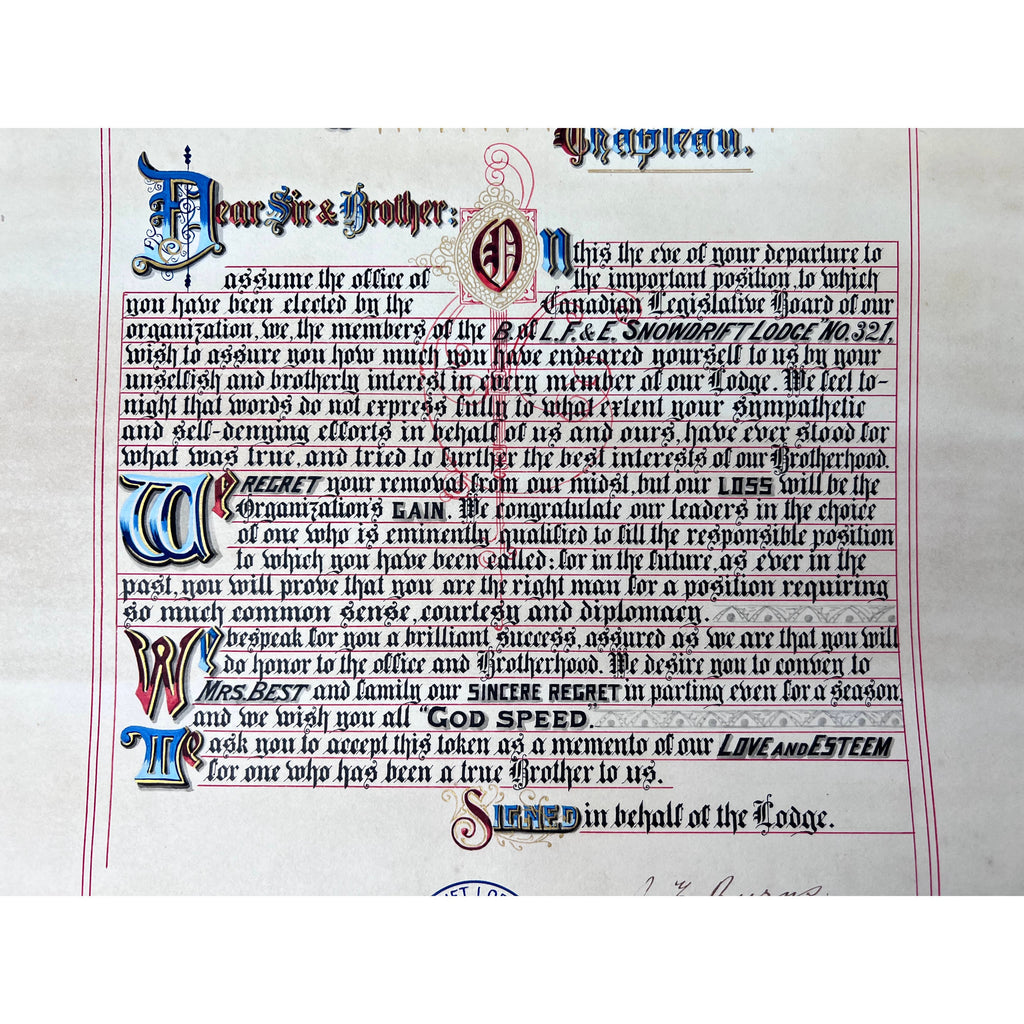 Chapleau.
Dear Sir & Brother:
On this the eve of your departure to
assume the office of the important position, to which
you have been elected by the Canadian Legislative Board of our
organization, we, the members of the B. of L. F. & E. "SNOWDRIFT LODGE" No. 321,
wish to assure you how much you have endeared yourself to us by your
unselfish and brotherly interest in every member of our Lodge. We feel to-
night that words do not express fully to what extent your sympathetic
and self-denying efforts in behalf of us and ours, have ever stood for
what was true, and tried to further the best interests of our Brotherhood.
We REGRET your removal from our midst, but our LOSS will be the
Organization's GAIN. We congratulate our leaders in the choice
of one who is eminently qualified to fill the responsible position
to which you have been called: for in the future, as ever in the
past, you will prove that you are the right man for a position requiring
so much common sense, courtesy and diplomacy.
We bespeak for you a brilliant success, assured as we are that you will
do honor to the office and Brotherhood. We desire you to convey to
MRS. BEST and family our SINCERE REGRET in parting even for a season,
and we wish you all "GOD SPEED."
We ask you to accept this token as a memento of our LOVE AND ESTEEM
for one who has been a true Brother to us.
SIGNED in behalf of the Lodge.